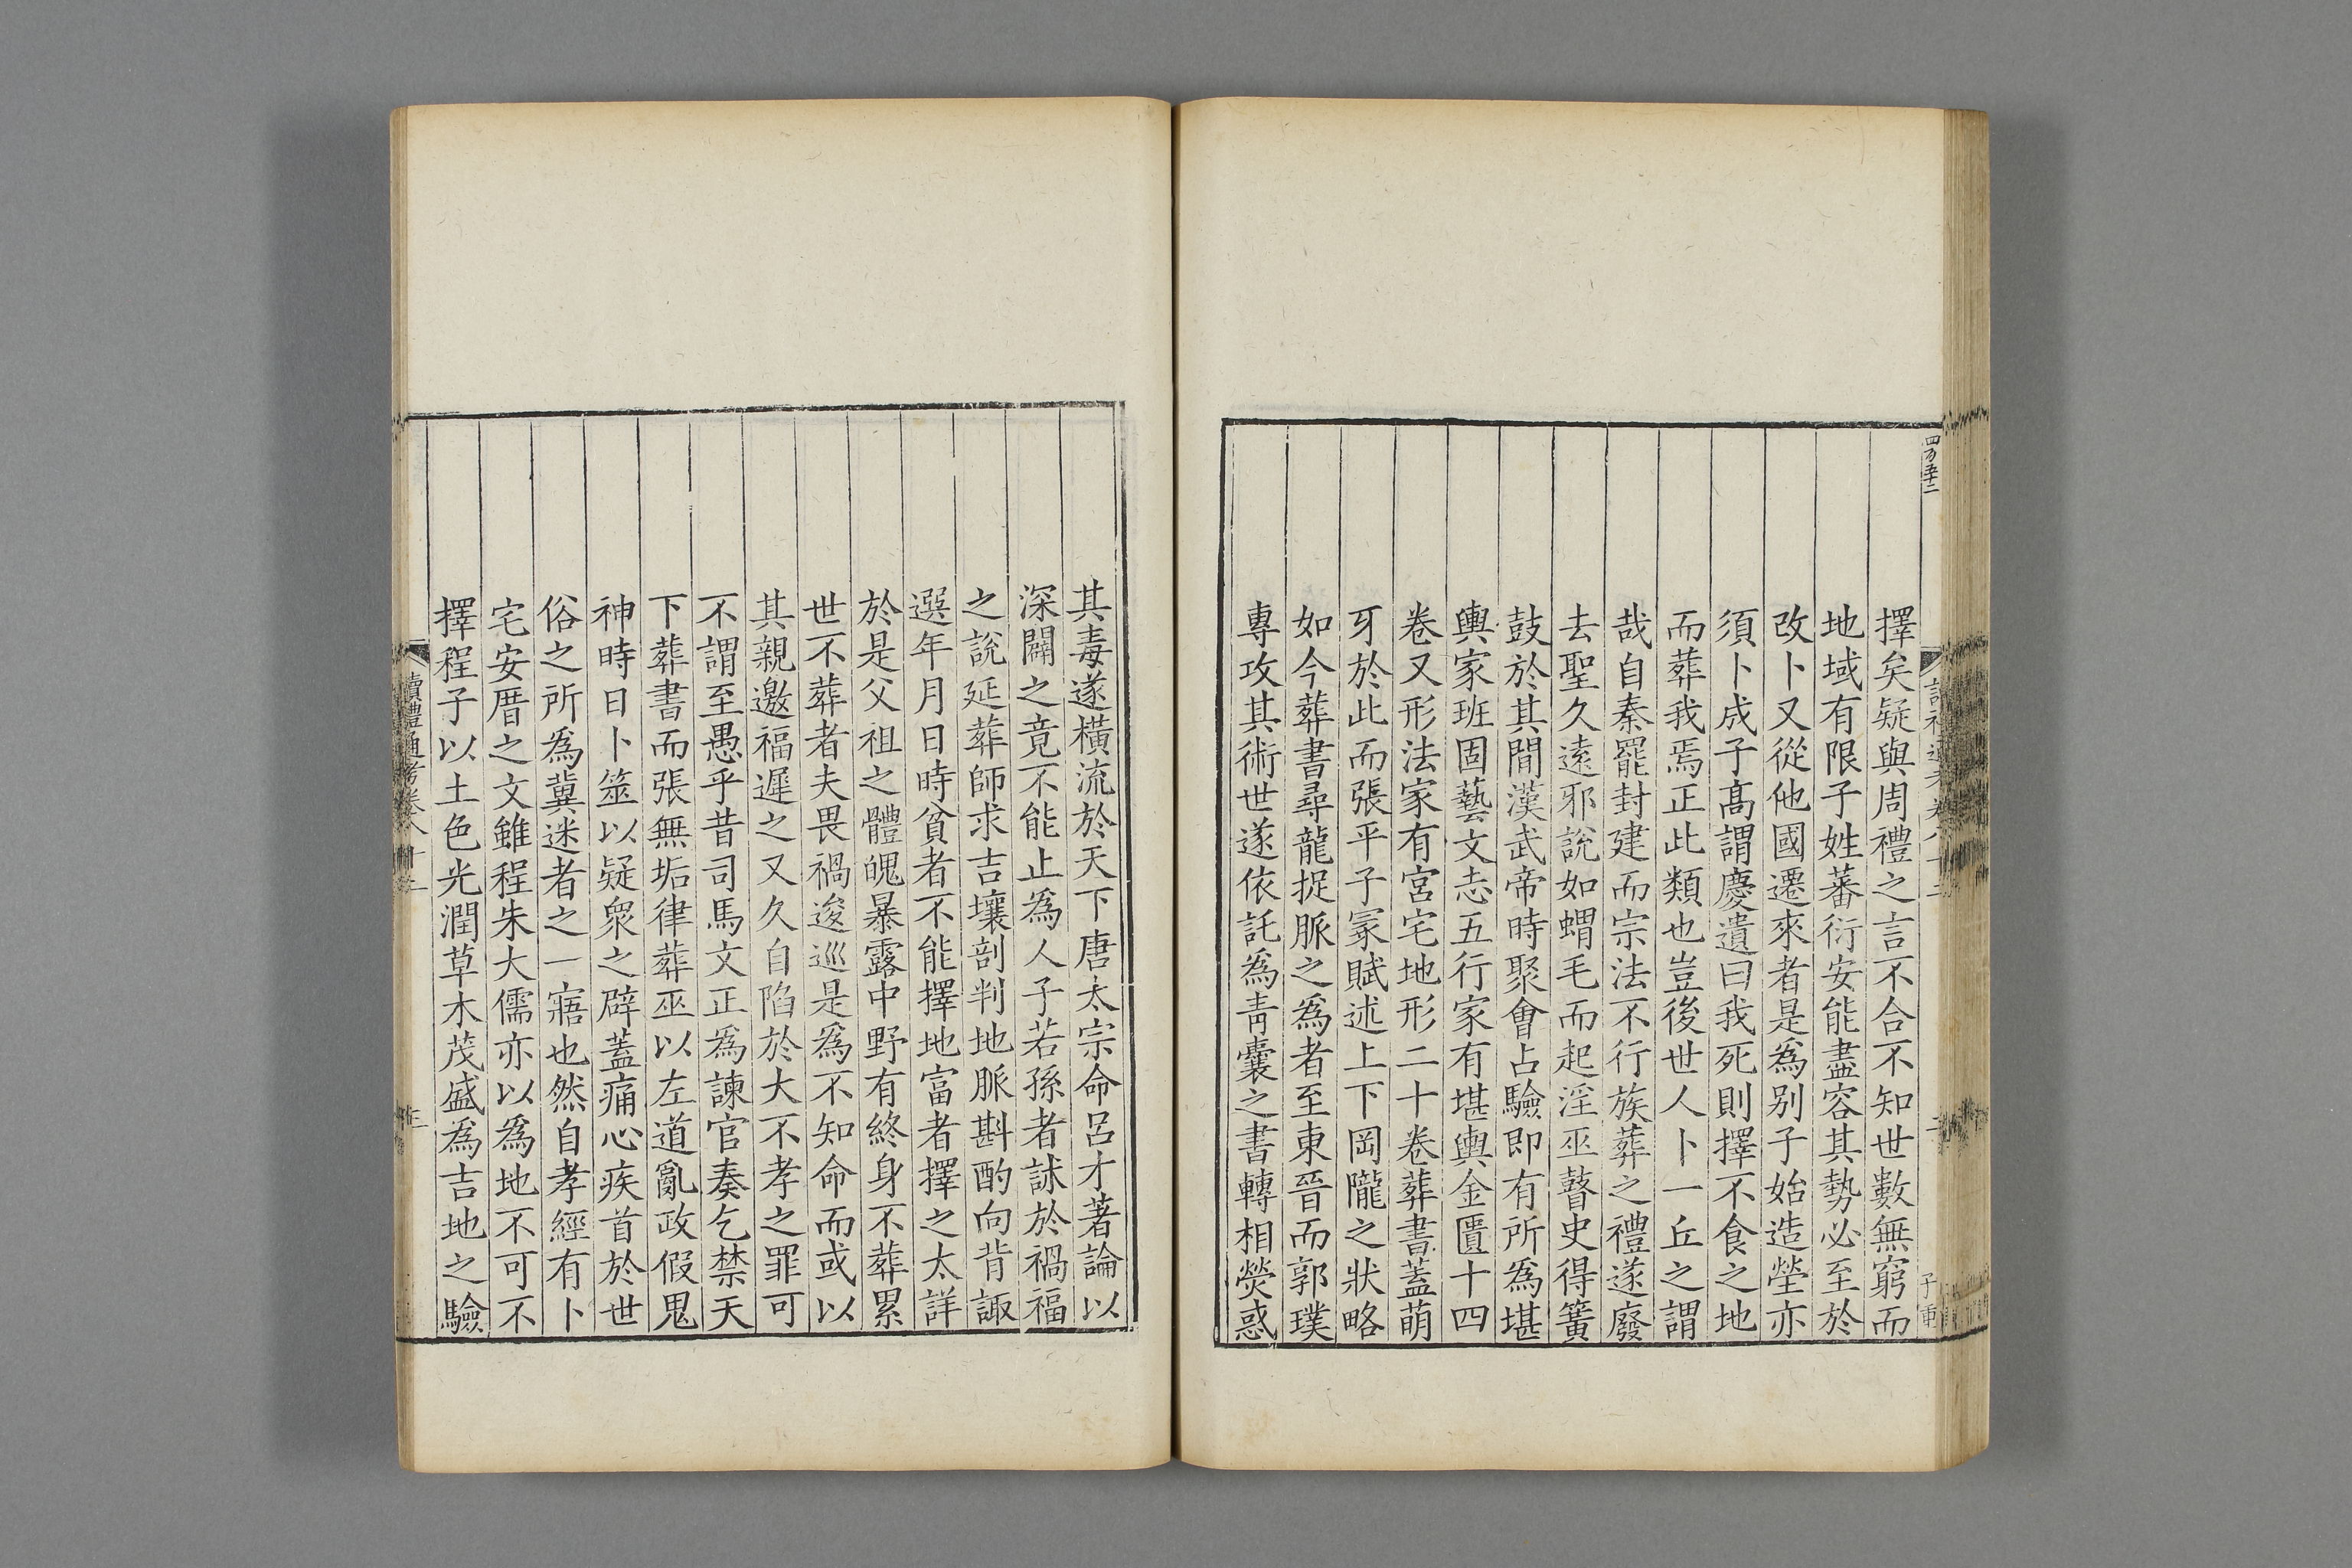 擇矣疑與周禮之言不合不知世數無窮而
地域有限子姓蕃衍安能盡容其勢必至於
改卜又從他國遷來者是為别子始造塋亦
須卜成子髙謂慶遺曰我死則擇不食之地
而葬我焉正此類也豈後世人卜一丘之謂
哉自秦罷封建而宗法不行族葬之禮遂廢
去聖久遠邪說如蝟毛而起淫巫瞽史得簧
鼓於其間漢武帝時聚㑹占驗即有所為堪
輿家班固藝文志五行家有堪輿金匱十四
卷又形法家有宮宅地形二十卷葬書蓋萌
牙於此而張平子冢賦述上下岡隴之狀略
如今葬書尋龍捉脈之為者至東晉而郭璞
專攻其術世遂依託為青囊之書轉相熒惑
其毒遂橫流於天下唐太宗命呂才著論以
深闢之竟不能止為人子若孫者訹於禍福
之說延葬師求吉壤剖判地脈斟酌向背諏
選年月日時貧者不能擇地富者擇之太詳
於是父祖之體魄暴露中野有終身不葬累
世不葬者夫畏禍逡巡是為不知命而或以
其親邀福遲之又久自陷於大不孝之罪可
不謂至愚乎昔司馬文正為諫官奏乞禁天
下葬書而張無垢律葬巫以左道亂政假鬼
神時日卜筮以疑衆之辟蓋痛心疾首於世
俗之所為冀迷者之一寤也然自孝經有卜
宅安厝之文雖程朱大儒亦以為地不可不
擇程子以土色光潤草木茂盛為吉地之驗
讀禮通考卷八十三